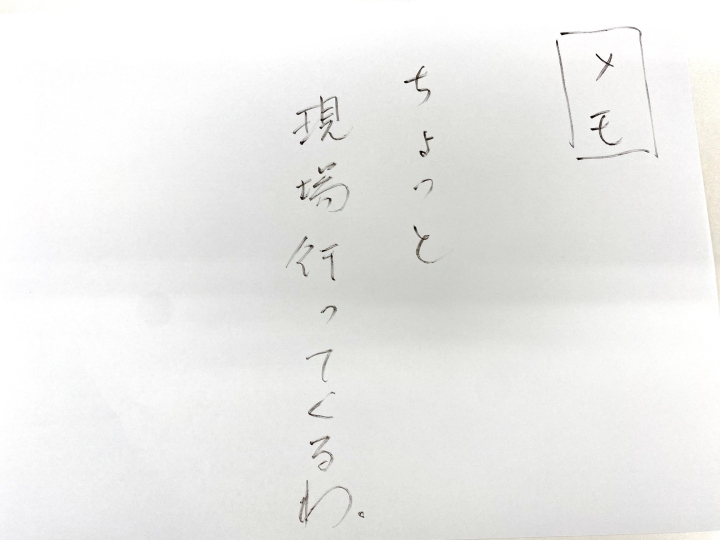 メモ
ちょっと
現場行ってくるわ。